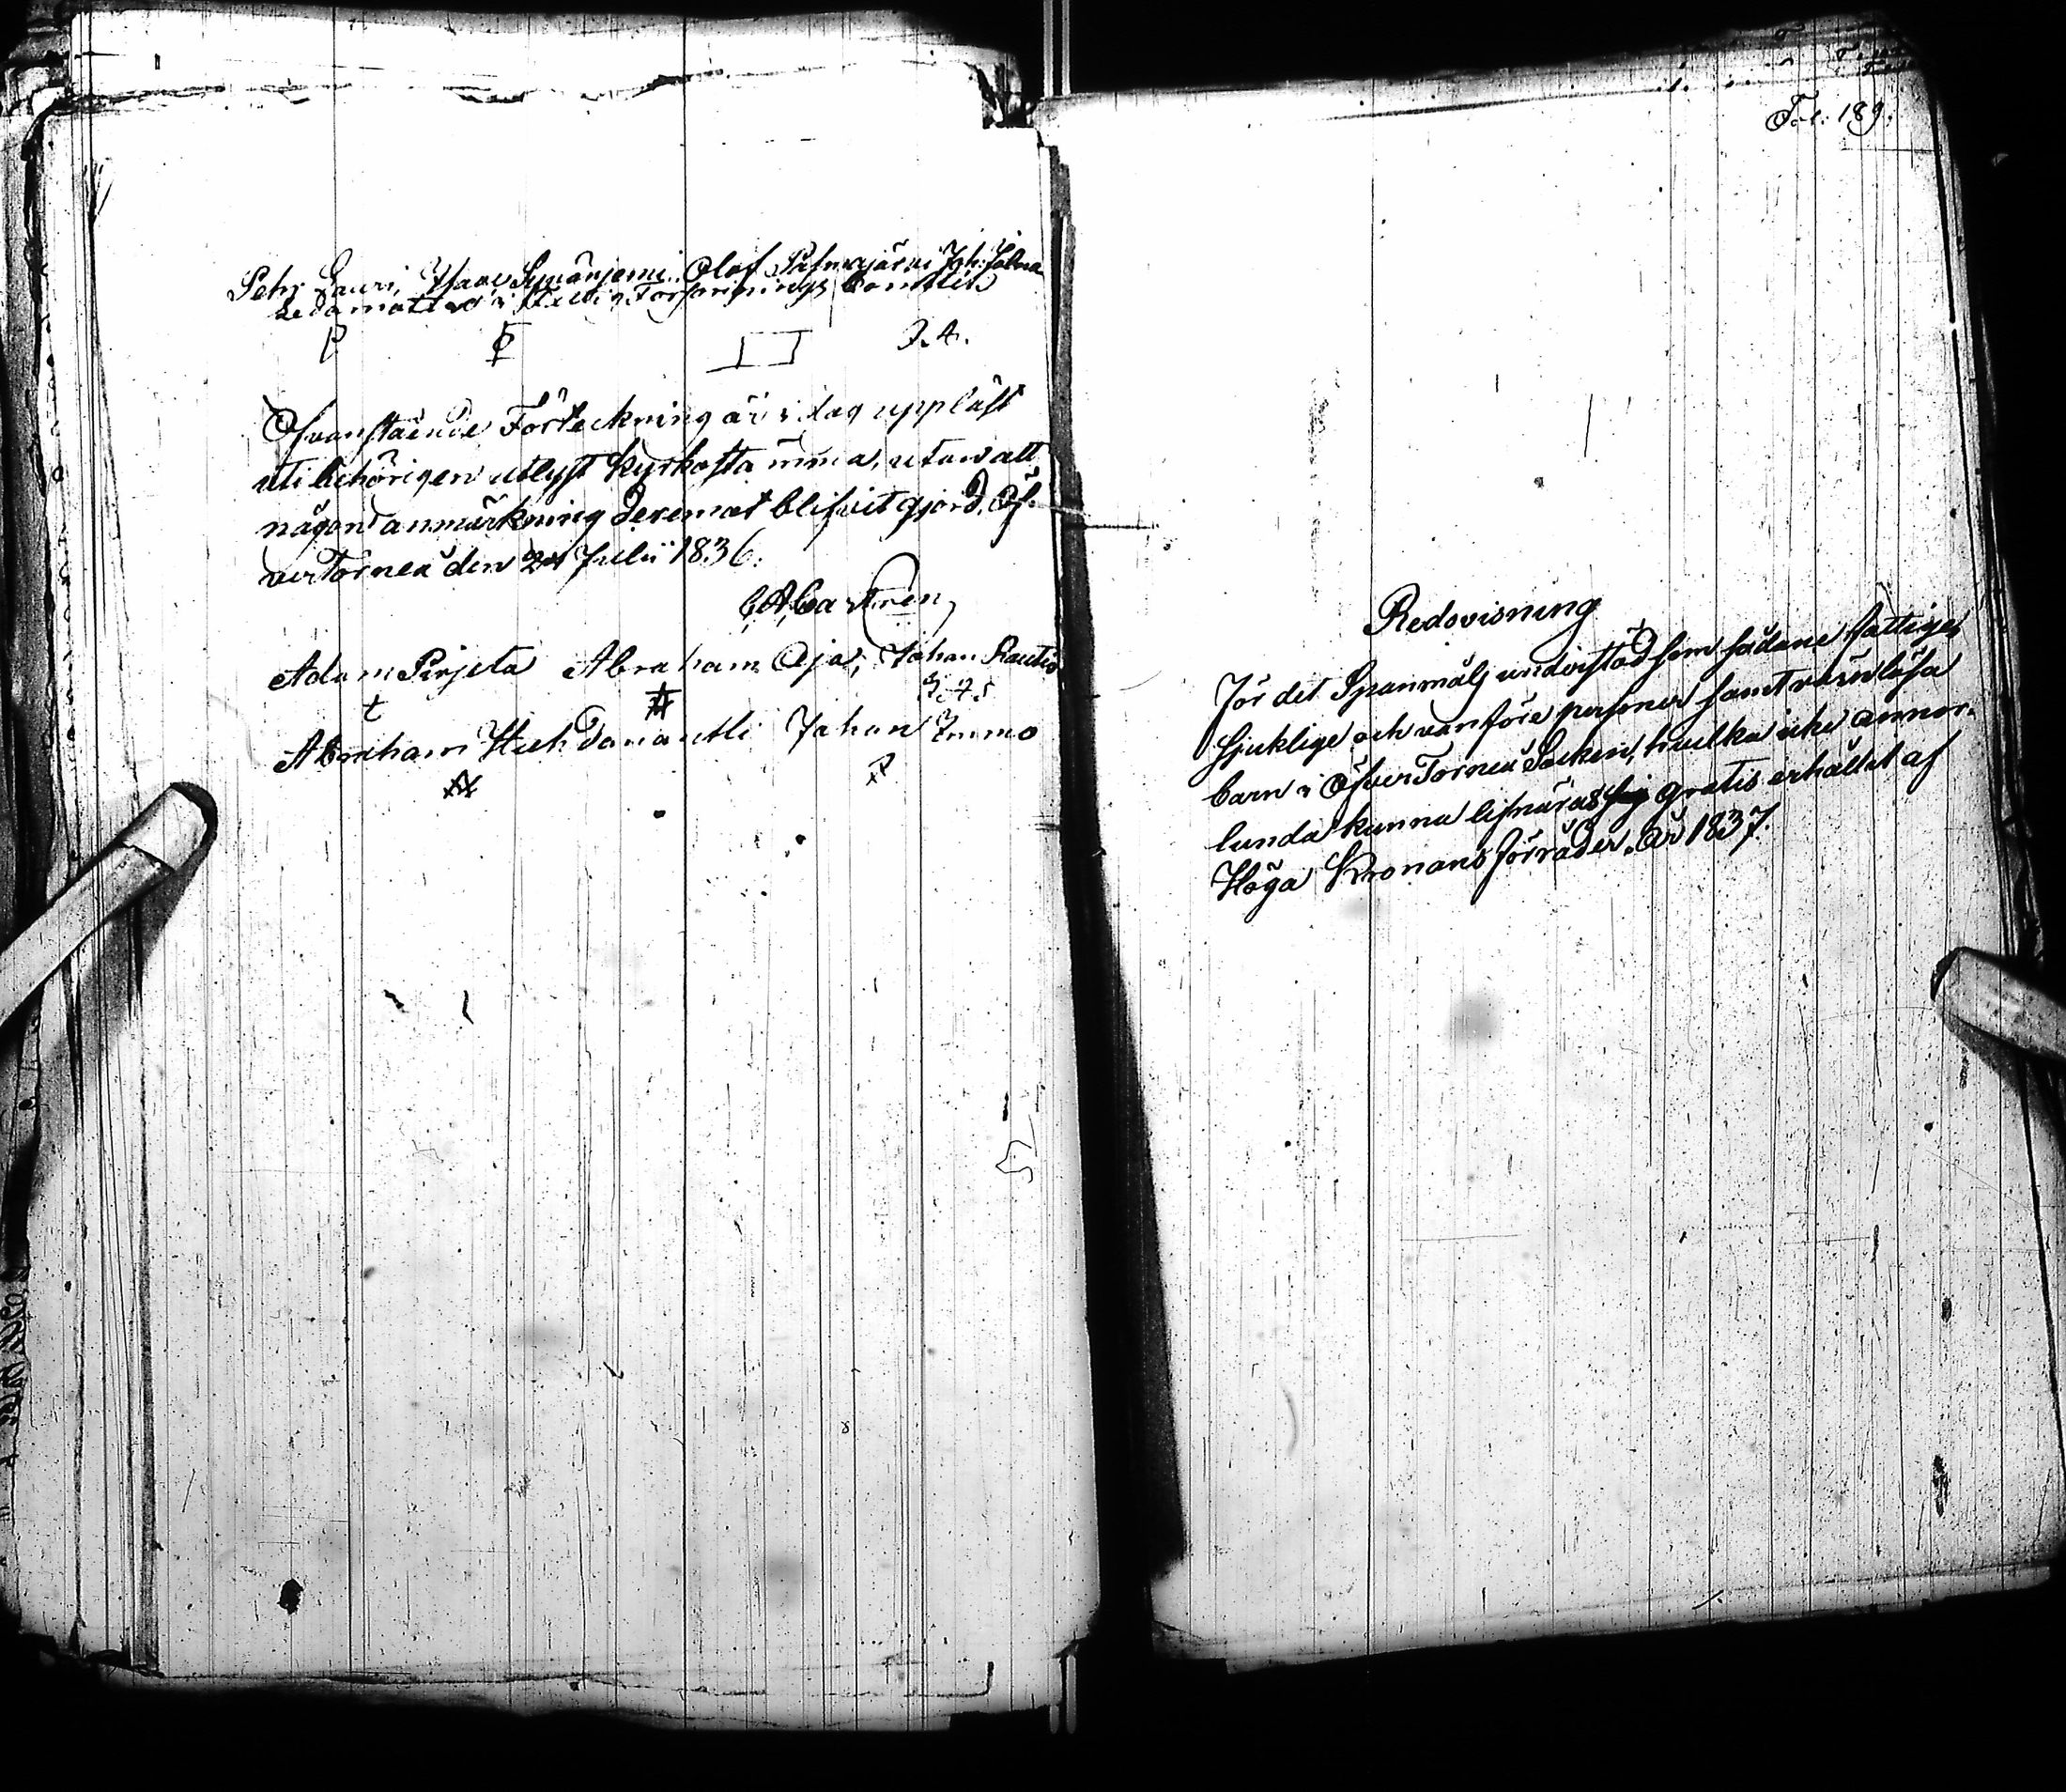 Pehr Lauri, Isaac Simänjemi. Olof Palmajärvi Joh: Jolma
Ledamöter i Kredit Försörjnings Comitteé
J. A.
Ofvanstående Förteckning är i dag uppläst
uti behörigen utlyst kyrkostämma, utan att
någon anmärkning deremot blifvit gjord. Öf-
ver Torneå den 24 Julii 1836.
C. A. Castrén
Adam Pirjeta Abraham Oja, Johan Rautio
Abraham Johan Immo
Fol: 189.
Redovisning
för det Spanmåls understöd som sådane fattige,
sjuklige och vanföre personer samt värnlösa
barn i Öfver Torneå Socken, hvilka icke annor-
lunda kunna lifnära sig gratis erhållit af
Höga Kronans förråder. År 1837.